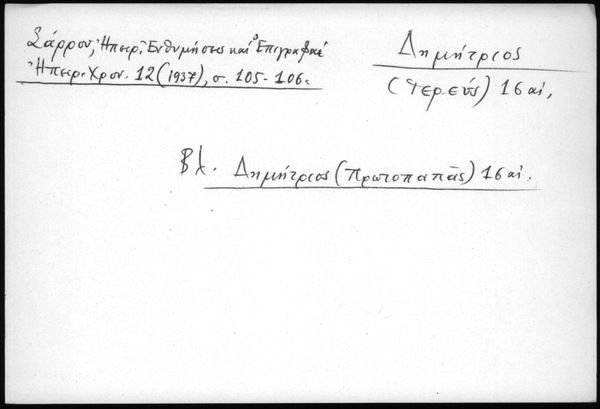 Σάρρου, Ἠπειρ. Ἐνθυμήσεις καὶ Ἐπιγραφαί
Ἠπειρ. Χρον. 12 (1937), σ. 105-106.
Δημήτριος
(Ἱερεύς) 16 αἰ.
Βλ. Δημήτριος (Πρωτοπαπᾶς) 16 αἰ.